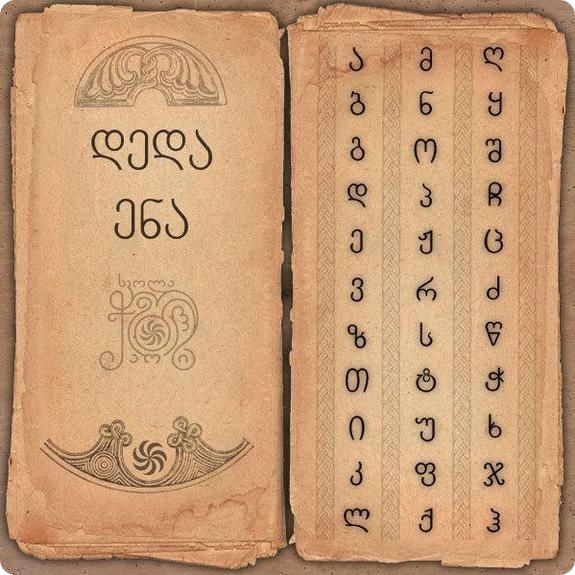 დედა
ენა
სკოლა
ა მ ღ
ბ ნ ყ
გ ო შ
დ პ ჩ
ე ჟ ც
ვ რ ძ
ზ ს წ
თ ტ ჭ
ი უ ხ
კ ფ ჯ
ლ ქ ჰ